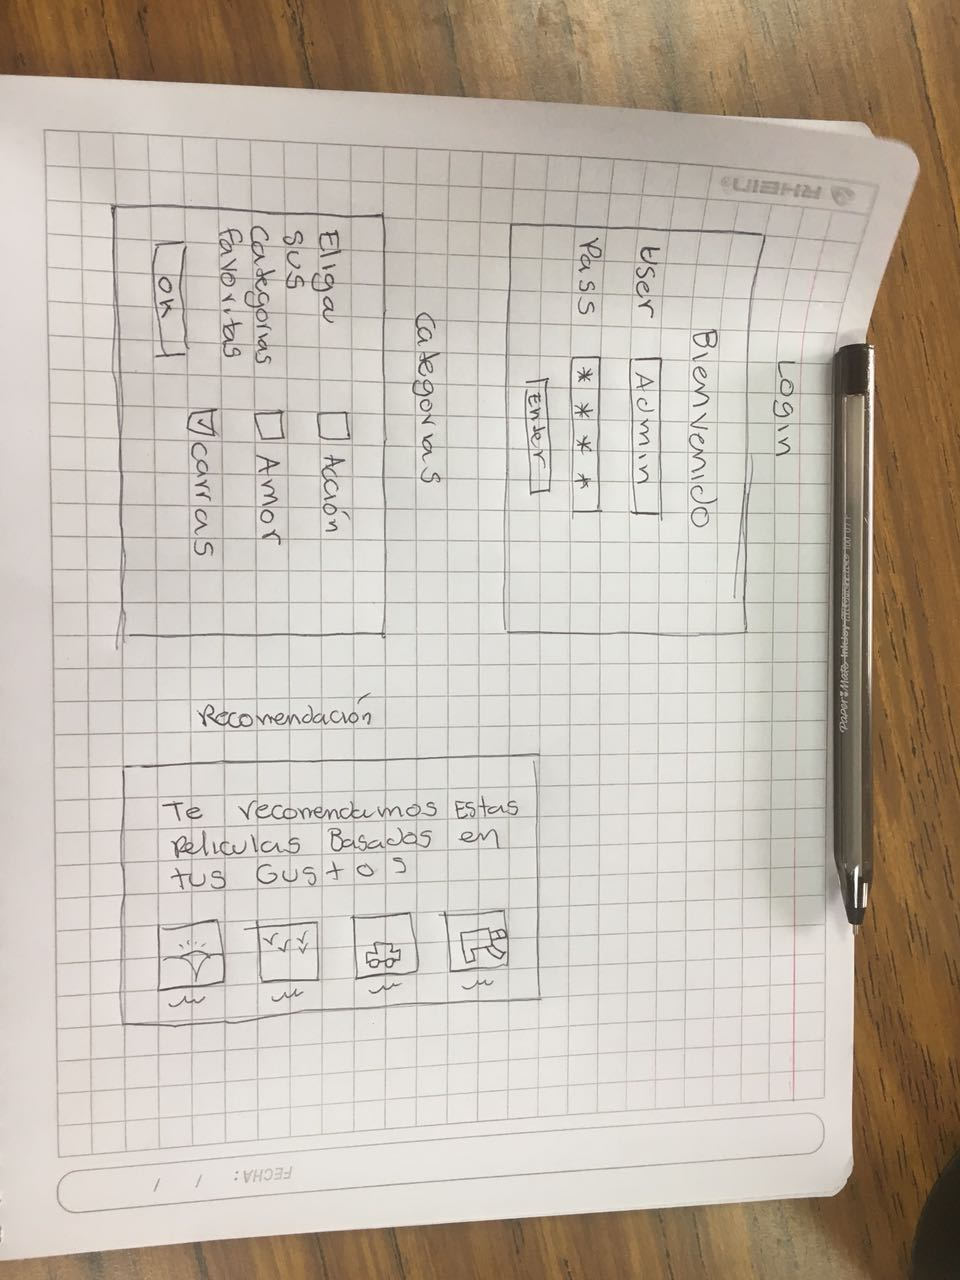 Login
Bienvenido
User Admin
Pass * * * *
Enter
Categorias
Eliga
sus
Categorias
favoritas
OK
Acción
Amor
carras
Recomendación
Te recomendamos Estas
Peliculas Basados en
tus Gustos
RHEIN®
FECHA: / /